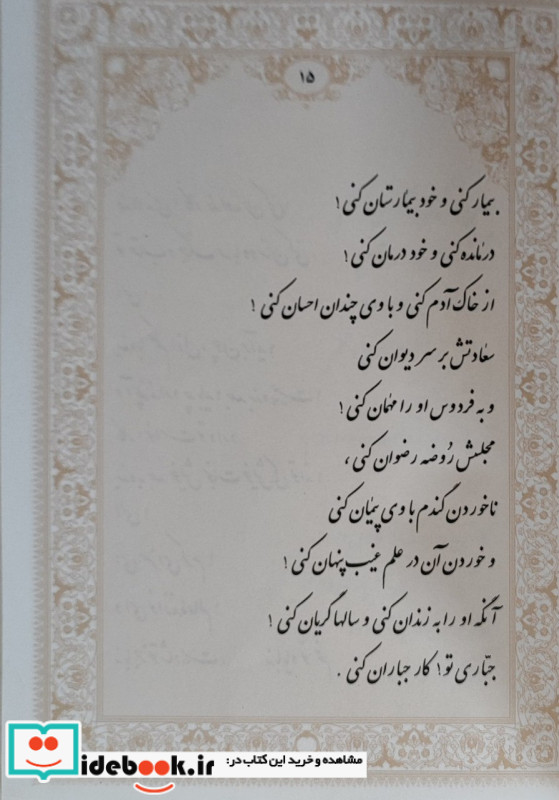 ۱۵
بیمار کنی و خود بیمارستان کنی!
درمانده کنی و خود درمان کنی!
از خاک آدم کنی و با وی چندان احسان کنی!
سعادتش بر سر دیوان کنی
و به فردوس او را مهمان کنی!
مجلسش رُوضه رضوان کنی،
ناخوردن گندم با وی پیمان کنی
و خوردن آن در علم غیب پنهان کنی!
آنگه او را به زندان کنی و سالها گریان کنی!
جبّاری تو! کار جباران کنی.
مشاهده و خرید این کتاب در:
idebook.ir